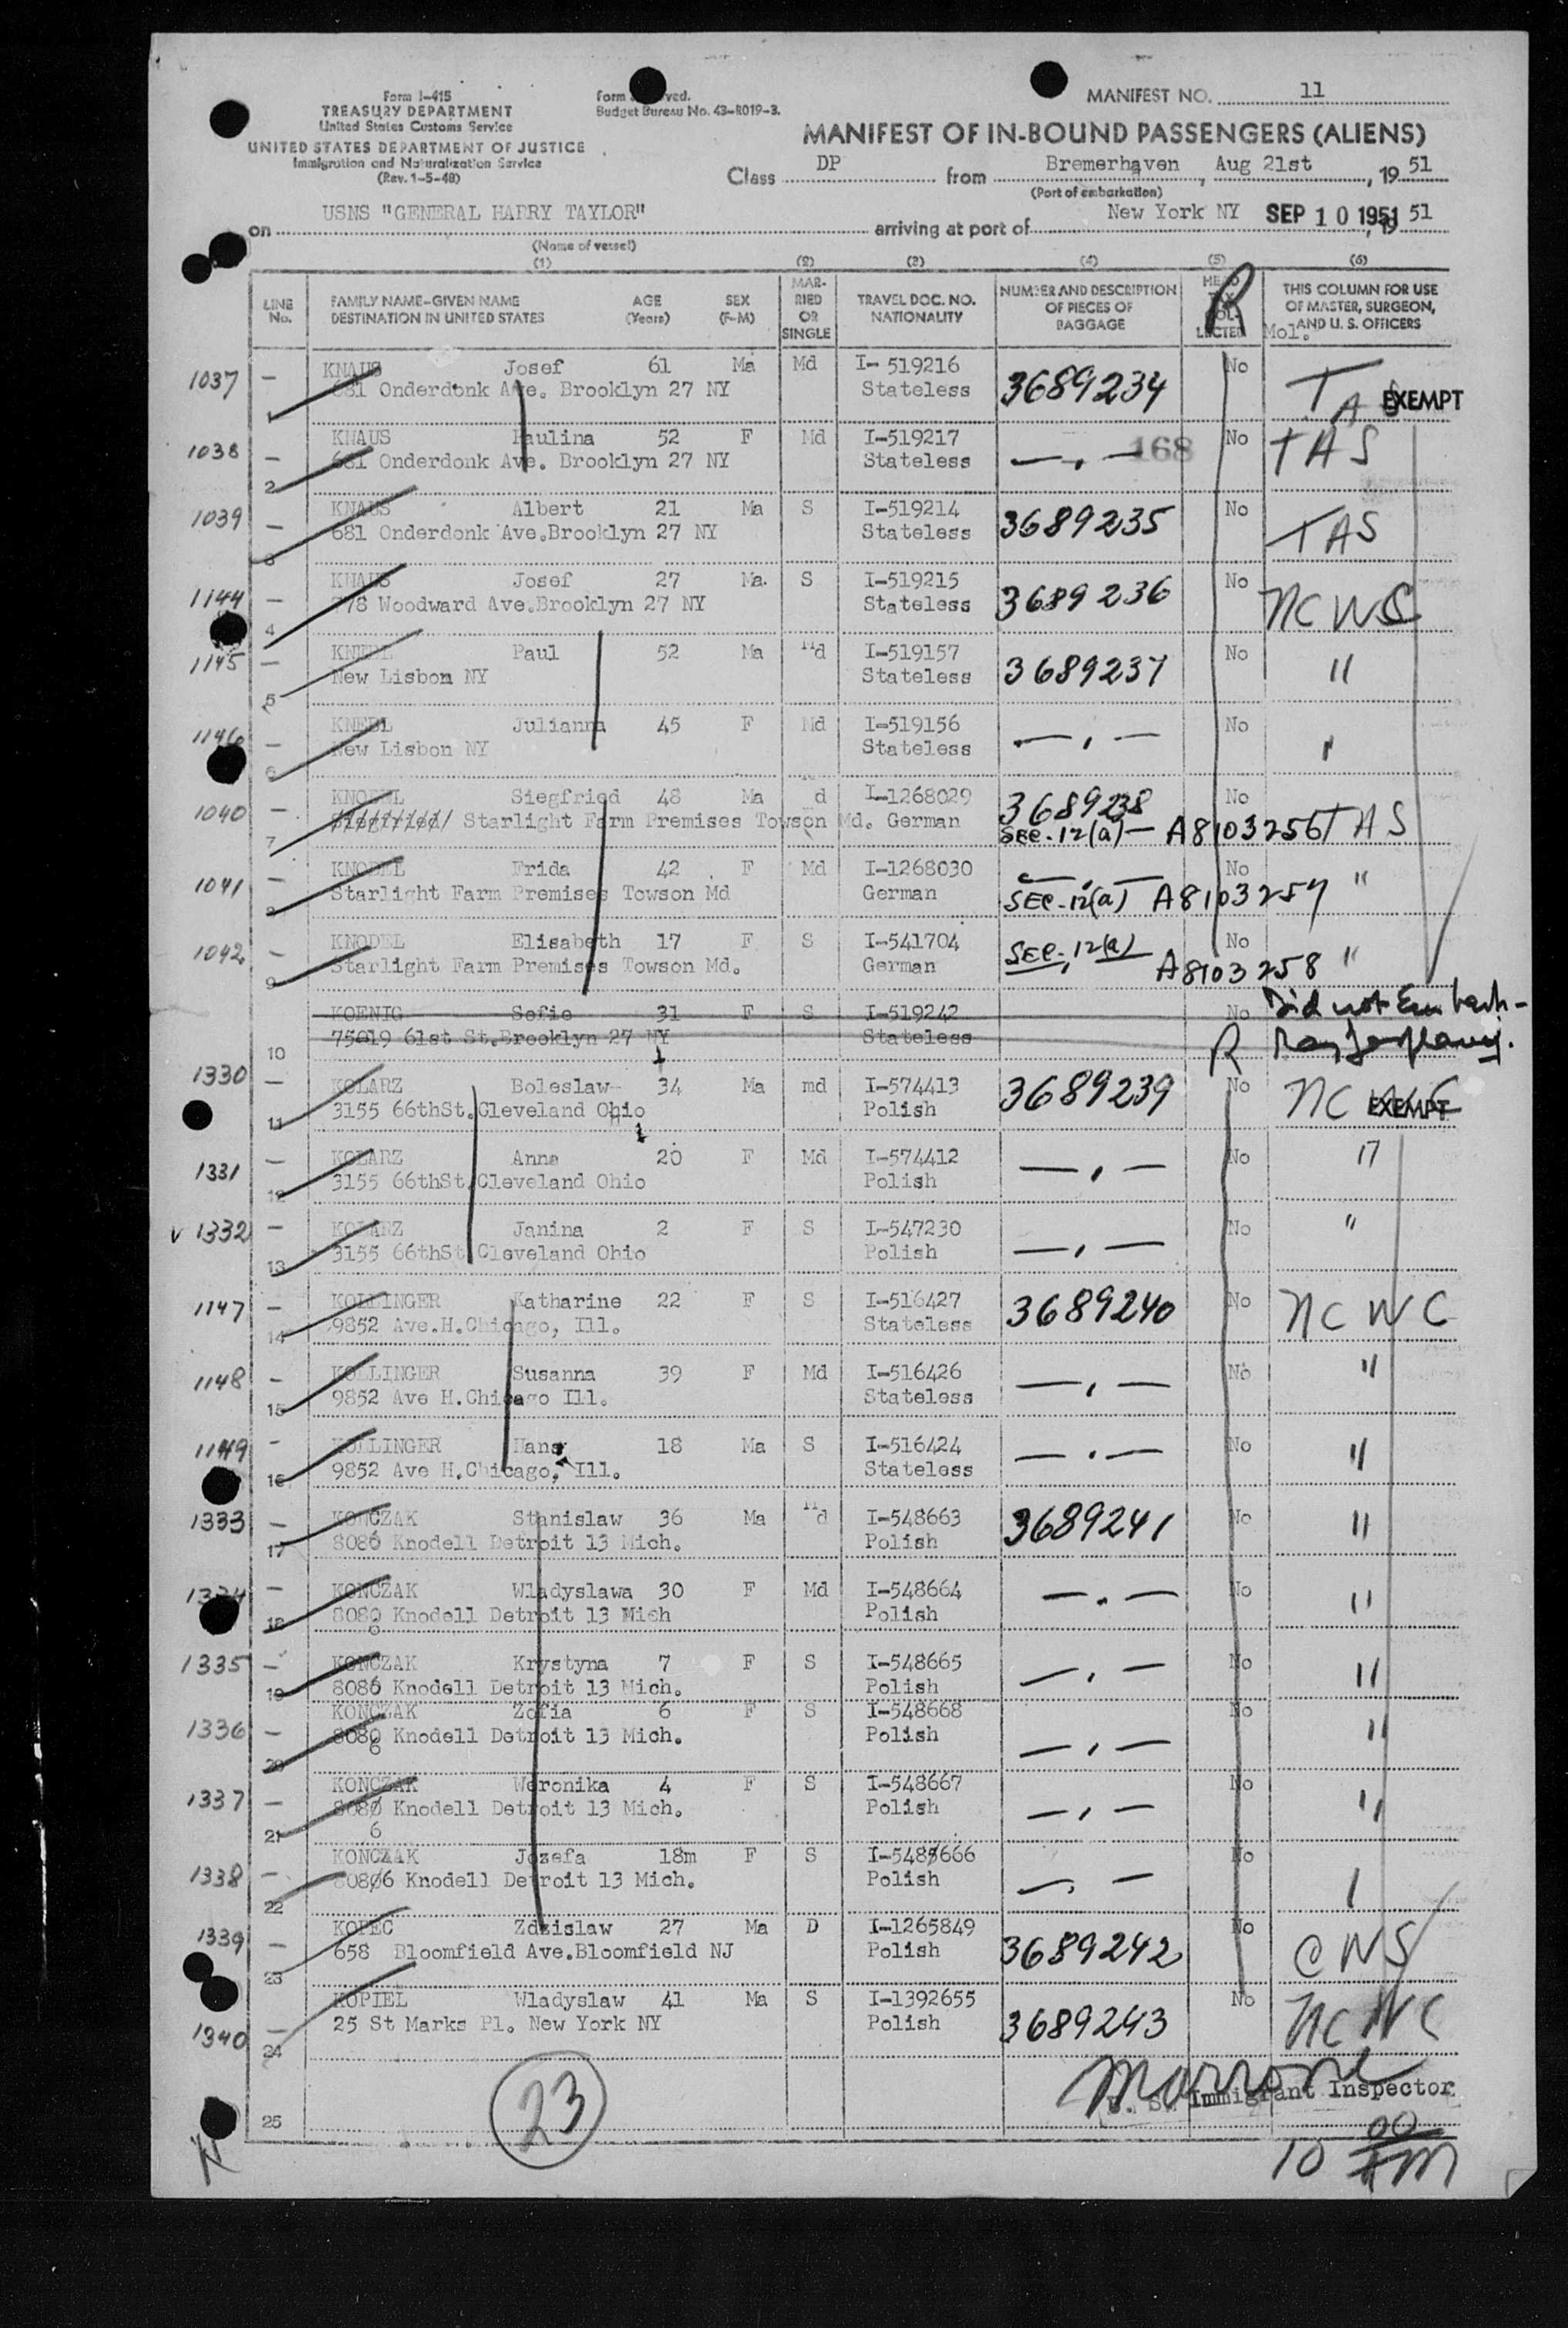 Form I-415
TREASURY DEPARTMENT
United States Customs Service
UNITED STATES DEPARTMENT OF JUSTICE
Immigration and Naturalization Service
(Rev. 1-5-48)
Form ved.
Budget Bureau No. 43-R019-3.
MANIFEST NO. 11
MANIFEST OF IN-BOUND PASSENGERS (ALIENS)
Class DP from Bremerhaven, Aug 21st, 19 51
(Port of embarkation)
on USNS "GENERAL HARRY TAYLOR" arriving at port of New York NY SEP 10 1951, 19 51
(Name of vessel)
(1) (2) (3) (4) (5) (6)
LINE No. FAMILY NAME-GIVEN NAME DESTINATION IN UNITED STATES AGE (Years) SEX (F-M) MARRIED OR SINGLE TRAVEL DOC. NO. NATIONALITY NUMBER AND DESCRIPTION OF PIECES OF BAGGAGE HEAD TAX COLLECTED THIS COLUMN FOR USE OF MASTER, SURGEON, AND U. S. OFFICERS
R Mol.
1037 – KNAUS Josef 61 Ma Md I- 519216 3689234 No TAS EXEMPT
1 681 Onderdonk Ave. Brooklyn 27 NY Stateless
1038 – KNAUS Paulina 52 F Md I-519217 —.— 168 No TAS
2 681 Onderdonk Ave. Brooklyn 27 NY Stateless
1039 – KNAUS Albert 21 Ma S I-519214 3689235 No TAS
3 681 Onderdonk Ave.Brooklyn 27 NY Stateless
1144 – KNAUS Josef 27 Ma. S I-519215 3689236 No NC WS
4 778 Woodward Ave.Brooklyn 27 NY Stateless
1145 – KNEBL Paul 52 Ma Md I-519157 3689237 No "
5 New Lisbon NY Stateless
1146 – KNEBL Julianna 45 F Md I-519156 —.— No "
6 New Lisbon NY Stateless
1040 – KNODEL Siegfried 48 Ma d I-1268029 3689238 No
7 Starlight Farm Premises Towson Md. German SEC.12(a)— A8103256 TAS
1041 – KNODEL Frida 42 F Md I-1268030 —.— No
8 Starlight Farm Premises Towson Md German SEC.12(a) A8103257 "
1042 – KNODEL Elisabeth 17 F S I-541704 SEC.12(a) No
9 Starlight Farm Premises Towson Md. German A8103258 "
KOENIG Sofie 31 F S I-519242 No Did not Embark-
10 75019 61st St.Brooklyn 27 NY Stateless R
1330 – KOLARZ Boleslaw 34 Ma md I-574413 3689239 No NC EXEMPT
11 3155 66thSt.Cleveland Ohio Polish
1331 – KOLARZ Anna 20 F Md I-574412 —.— No "
12 3155 66thSt.Cleveland Ohio Polish
v 1332 – KOLARZ Janina 2 F S I-547230 —.— No "
13 3155 66thSt.Cleveland Ohio Polish
1147 – KOLLINGER Katharine 22 F S I-516427 3689240 No NC WC
14 9852 Ave.H.Chicago, Ill. Stateless
1148 – KOLLINGER Susanna 39 F Md I-516426 —.— No "
15 9852 Ave H.Chicago Ill. Stateless
1149 – KOLLINGER Hans 18 Ma S I-516424 —.— No "
16 9852 Ave H.Chicago, Ill. Stateless
1333 – KONCZAK Stanislaw 36 Ma Md I-548663 3689241 No "
17 8086 Knodell Detroit 13 Mich. Polish
1334 – KONCZAK Wladyslawa 30 F Md I-548664 —.— No "
18 8080 Knodell Detroit 13 Mich Polish
6
1335 – KONCZAK Krystyna 7 F S I-548665 —.— No "
19 8086 Knodell Detroit 13 Mich. Polish
1336 – KONCZAK Zofia 6 F S I-548668 —.— No "
20 8080 Knodell Detroit 13 Mich. Polish
6
1337 – KONCZAK Weronika 4 F S I-548667 —.— No "
21 8080 Knodell Detroit 13 Mich. Polish
6
1338 – KONCZAK Jozefa 18m F S I-548666 —.— No
22 8086 Knodell Detroit 13 Mich. Polish
1339 – KOPEC Zdzislaw 27 Ma D I-1265849 3689242 No CWS
23 658 Bloomfield Ave.Bloomfield NJ Polish
1340 – KOPIEL Wladyslaw 41 Ma S I-1392655 3689243 No NC WC
24 25 St Marks Pl. New York NY Polish
25 23 Marrone
U. S. Immigrant Inspector
10 00 AM